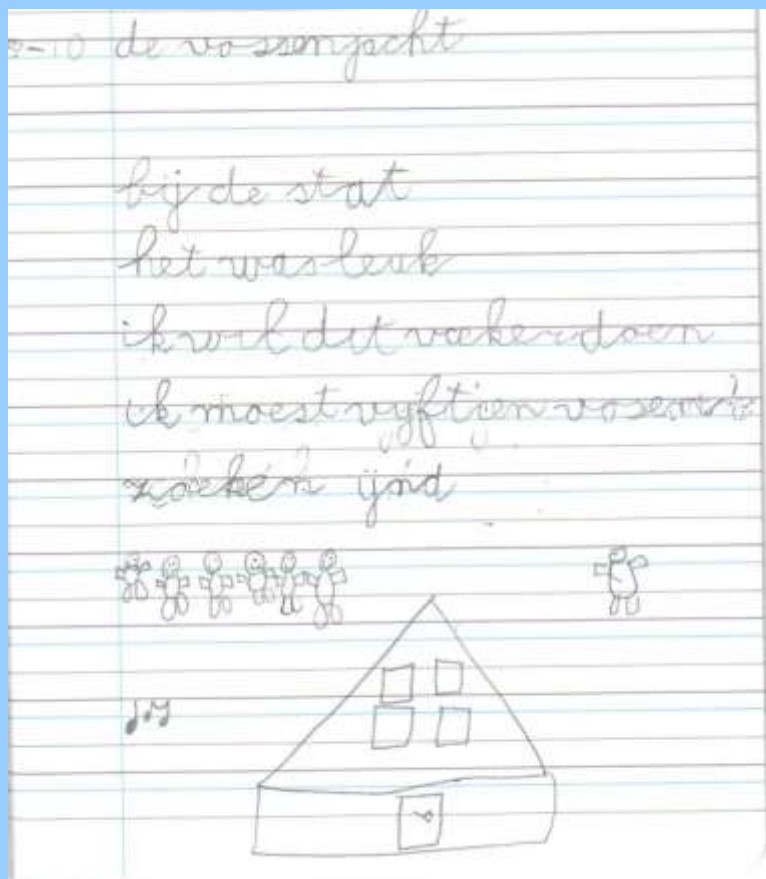 -10 de vossenjacht
bij de stat
het was leuk
ik wil dit vaker doen
ik moest vijftien vosen
zoeken ijnd